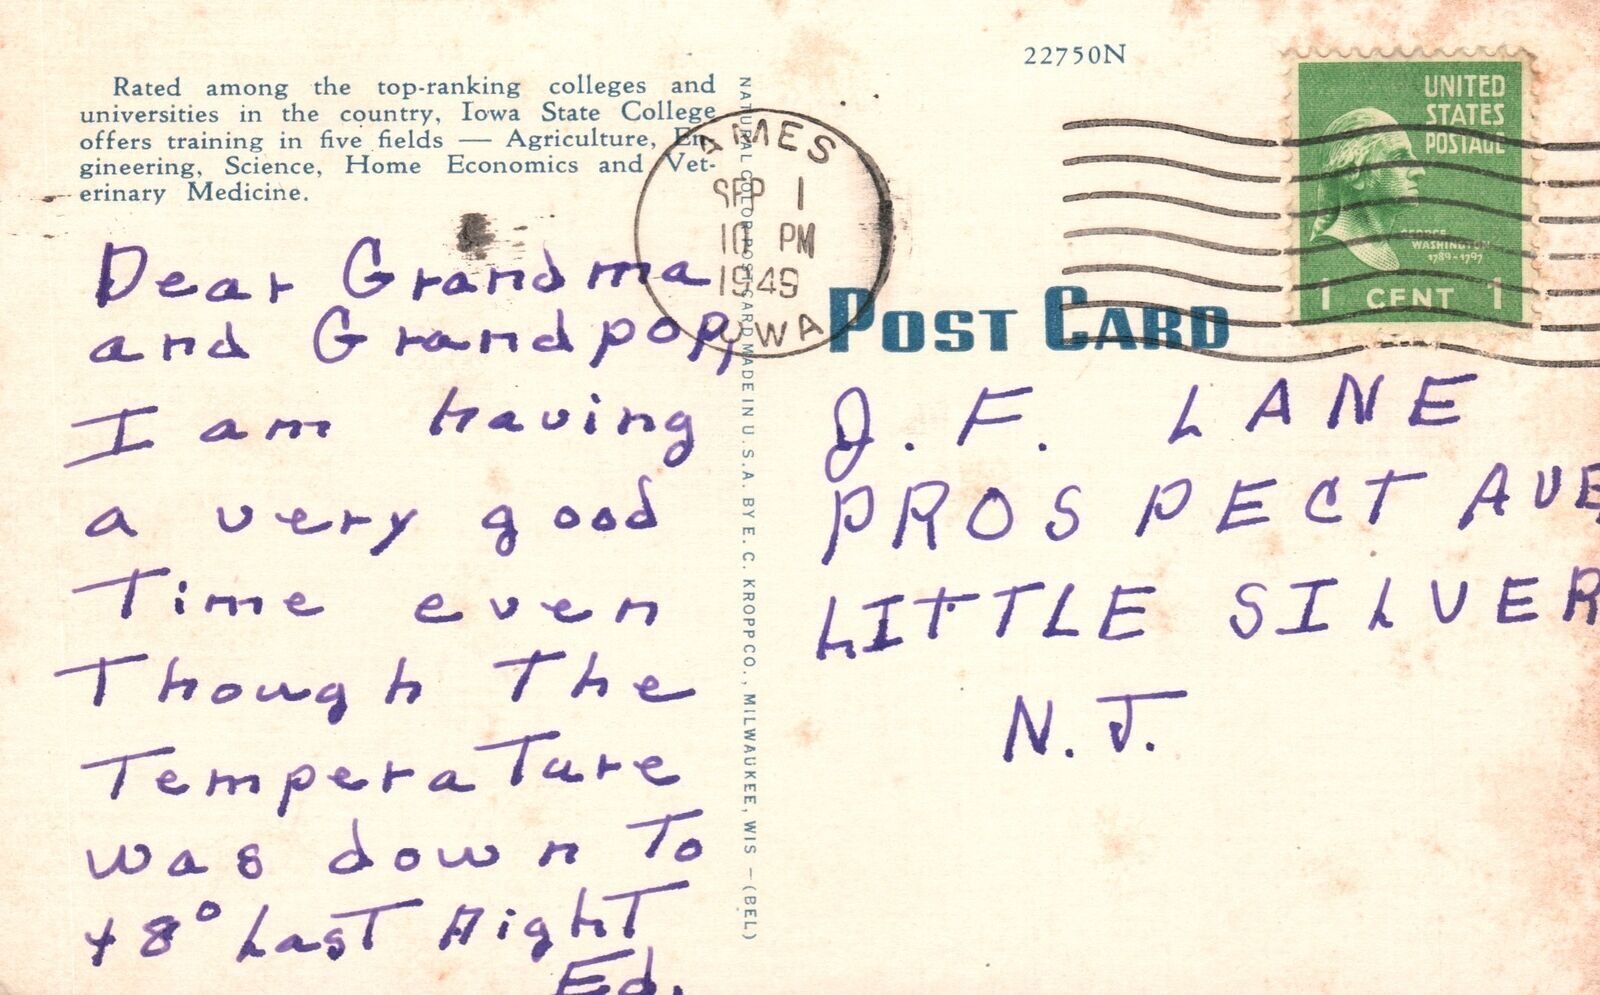 22750N
Rated among the top-ranking colleges and
universities in the country, Iowa State College
offers training in five fields — Agriculture, En-
gineering, Science, Home Economics and Vet-
erinary Medicine.
NATURAL COLOR POST CARD MADE IN U. S. A. BY E. C. KROPP CO., MILWAUKEE, WIS — (BEL)
AMES
SEP 1
10 PM
1949
IOWA
UNITED
STATES
POSTAGE
GEORGE
WASHINGTON
1789-1797
1 CENT 1
POST CARD
Dear Grandma
and Grandpop,
I am having
a very good
Time even
Though The
TemperaTure
was down To
48° LasT NighT
Ed.
J. F. LANE
PROSPECT AVE
LITTLE SILVER
N. J.